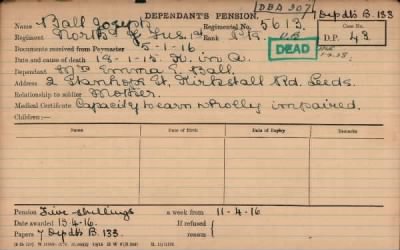 DEPENDANT'S PENSION.
DBA 207
7 Depdts B. 133
Name Ball Joseph
Regimental No. 5613
Regiment North'd Fus. 1st Rank Pte.
D.P. 43
Documents received from Paymaster 5-1-16
DEAD
Date and cause of death 18-1-15. K. in A.
Dependant Mrs Emma E. Ball.
Address 2 Stanhope St, Kirkstall Rd. Leeds.
Relationship to soldier Mother.
Medical Certificate Capacity to earn wholly impaired.
Children:—
Name. Date of Birth. Date of Expiry Name. Date of Birth. Date of Expiry.
Pension Five shillings a week from 11-4-16
Date awarded 13.4.16. If refused
Papers 7 Depdts B. 133 reason